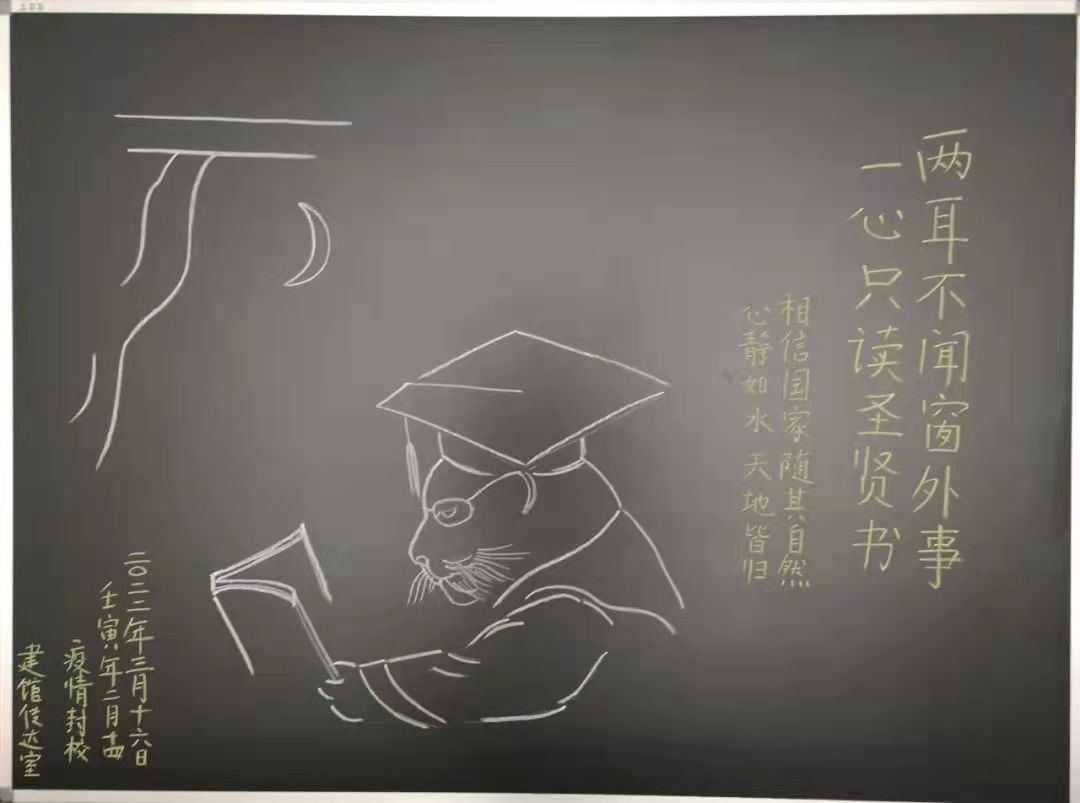 两耳不闻窗外事
一心只读圣贤书
相信国家随其自然
心静如水天地皆归
二〇二二年三月十六日
壬寅年二月十四
疫情封校
建馆传达室